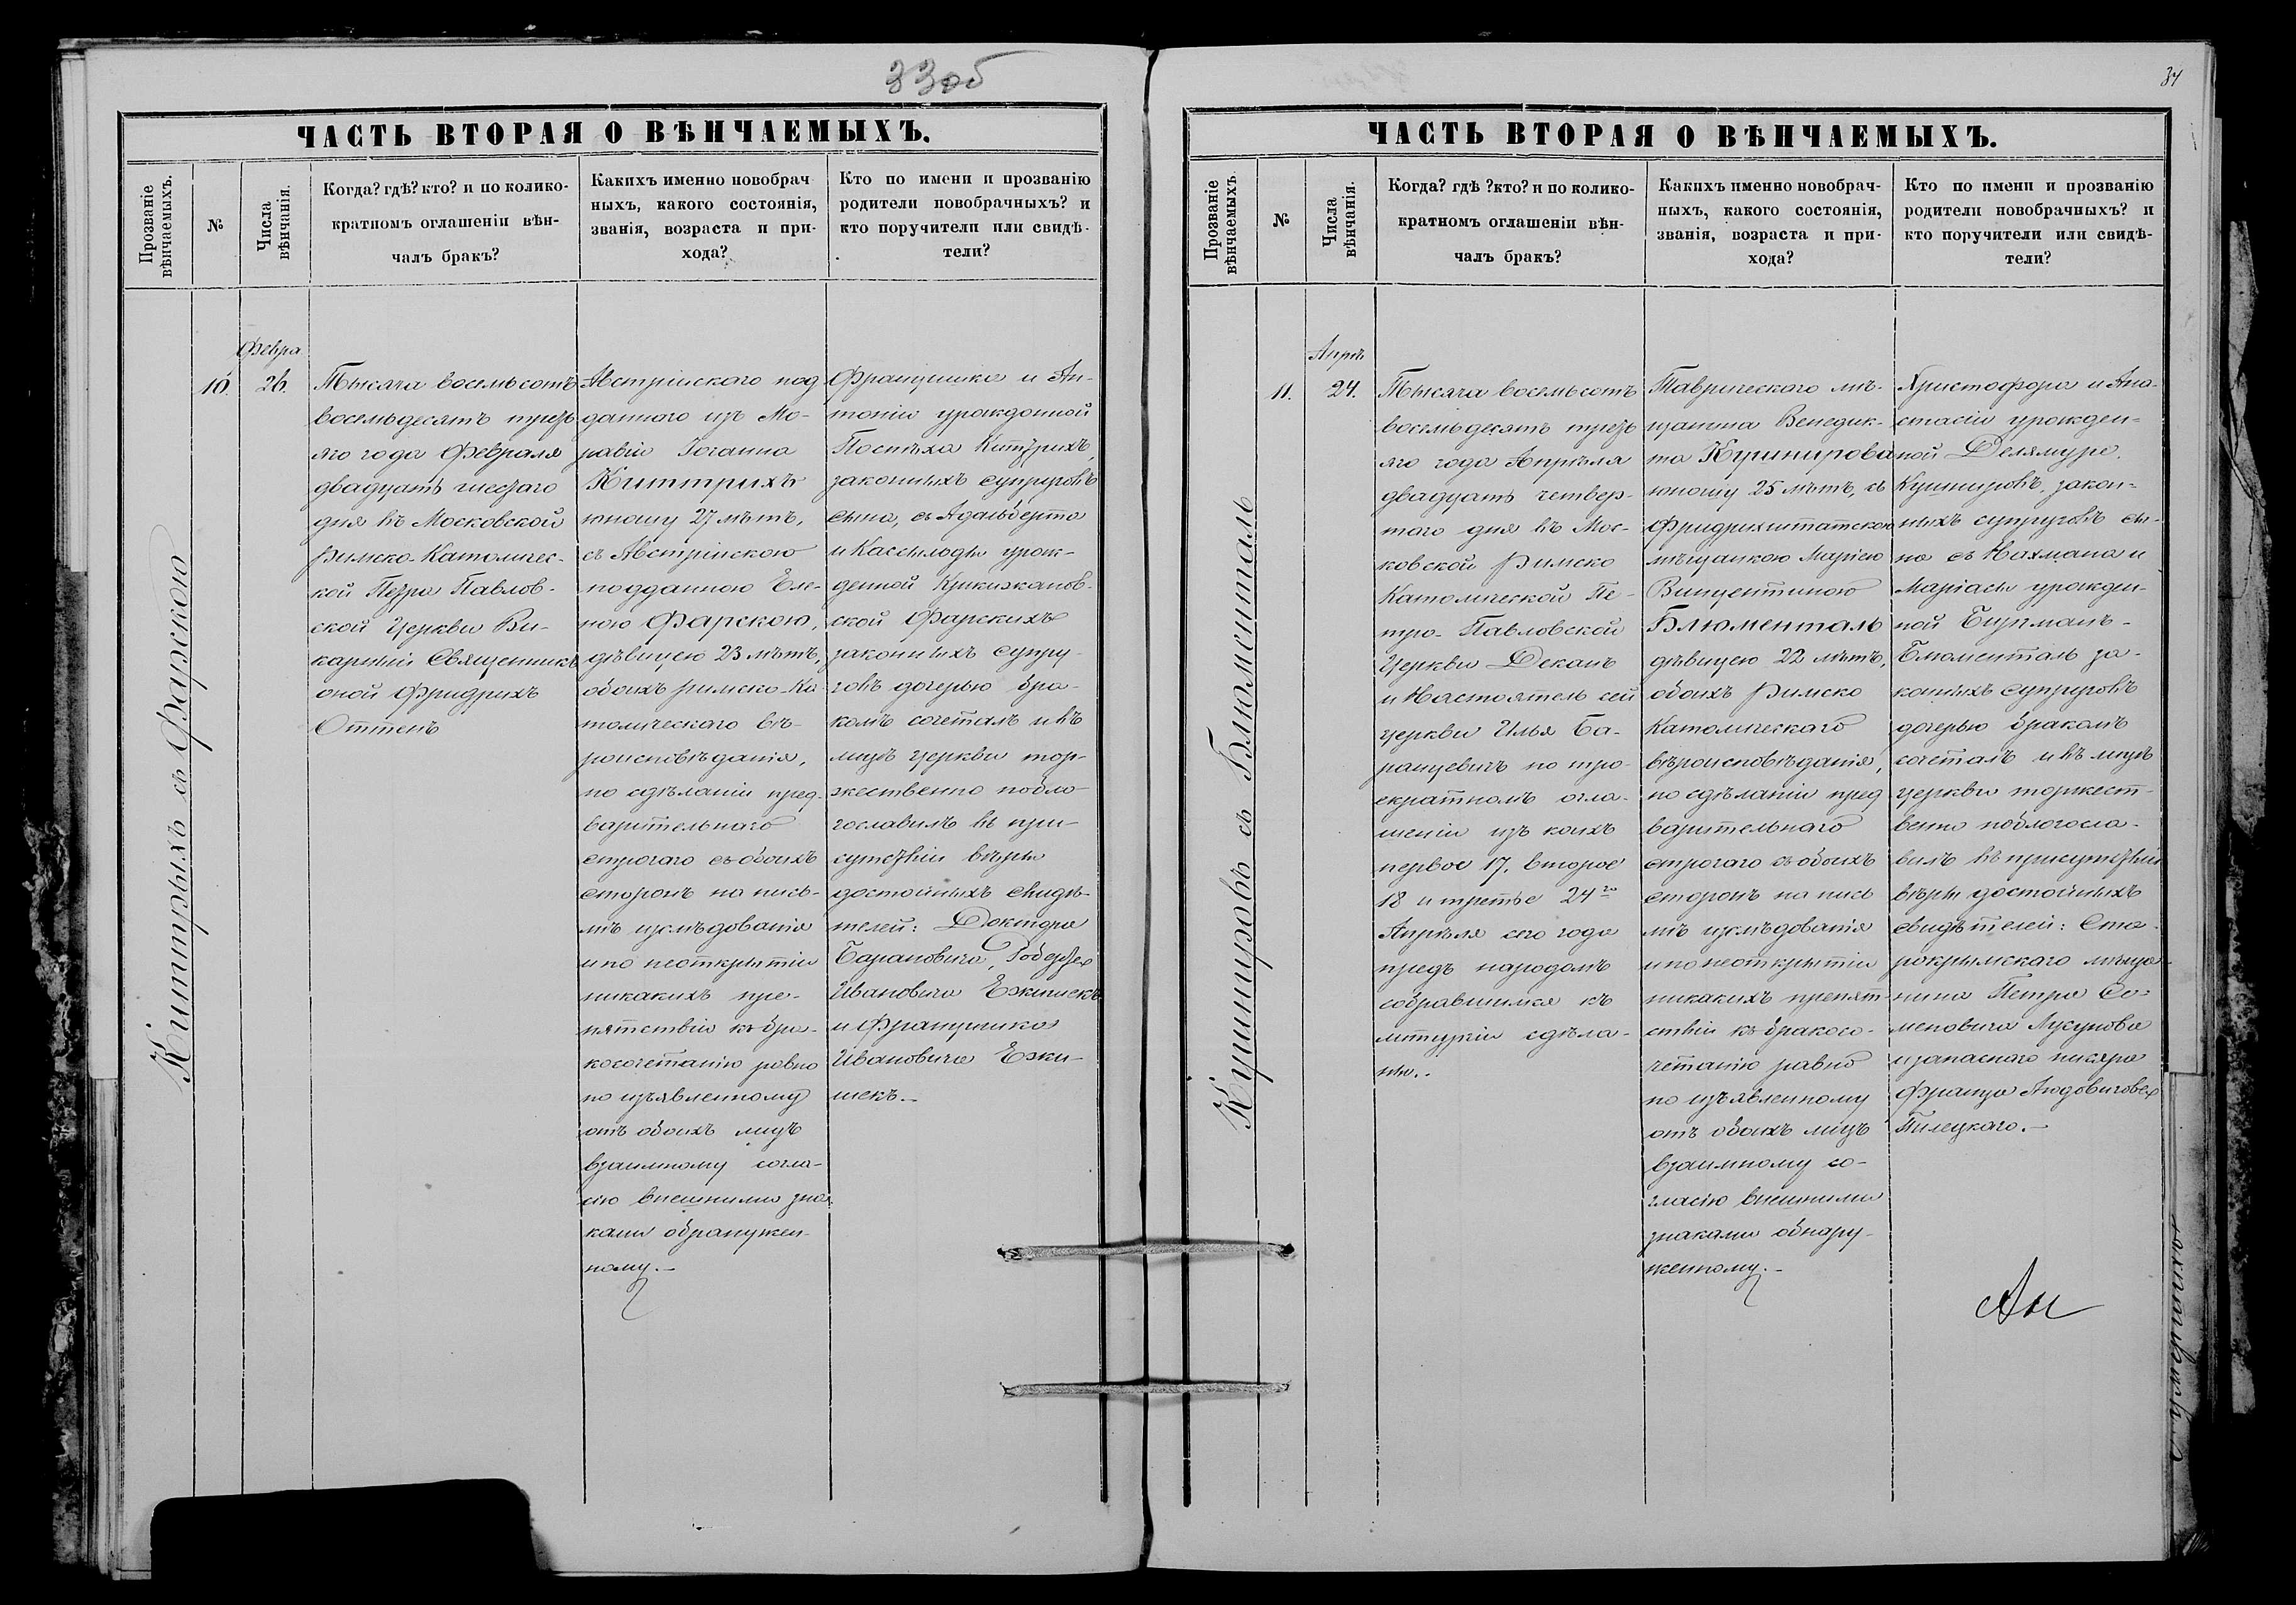 33об
ЧАСТЬ ВТОРАЯ О ВѢНЧАЕМЫХЪ.
Прозваніе
вѣнчаемыхъ.
№
Числа
вѣнчанія.
Когда? гдѣ? кто? и по колико-
кратномъ оглашеніи вѣн-
чалъ бракъ?
Какихъ именно новобрач
ныхъ, какого состоянія,
званія, возраста и при-
хода?
Кто по имени и прозванію
родители новобрачныхъ? и
кто поручители или свидѣ-
тели?
Киттрихъ съ Фарскою
10.
Февра
26.
Тысяча восемьсотъ
восемьдесятъ треть
яго года Февраля
двадцать шестаго
дня въ Московской
Римско-Католичес-
кой Петро Павлов-
ской Церкви Ви-
карный Священникъ
оной Фридрихъ
Оттенъ
Австрійскаго под
даннаго изъ Мо-
равіи Іоганна
Киттрихъ
юношу 27 лѣтъ,
съ Австрійскою
подданною Еле-
ною Фарскою,
дѣвицею 23 лѣтъ,
обоихъ римско-Ка
толическаго вѣ-
роисповѣданія,
по сдѣланіи пред-
варительнаго
строгаго съ обоихъ
сторонъ на пись-
мѣ изслѣдованія
и по неоткрытіи
никакихъ пре-
пятствій къ бра-
косочетанію равно
по изъявленному
отъ обоихъ лицъ
взаимному согла-
сію внешними зна-
ками обранужен-
ному.-
Францишка и Ан-
тоніи урожденной
Киттрихъ,
законныхъ супруговъ
сына, съ Адальберта
и урож-
денной
ской Фарскихъ
законныхъ супру-
говъ дочерью бра-
комъ сочеталъ и въ
лицѣ церкви тор-
жественно побла-
гославилъ въ при-
сутствіи вѣры
достойныхъ свидѣ-
телей: Доктора
Барановича,
Ивановича
и Францишка
Ивановича Ежи-
шекъ.-
34
ЧАСТЬ ВТОРАЯ О ВѢНЧАЕМЫХЪ.
Прозваніе
вѣнчаемыхъ
№
Числа
вѣнчанія.
Когда? гдѣ ?кто? и по колико-
кратномъ оглашеніи вѣн-
чалъ бракъ?
Какихъ именно новобрач-
ныхъ, какого состоянія,
званія, возраста и при-
хода?
Кто по имени и прозванію
родители новобрачныхъ? и
кто поручители или свидѣ-
тели?
Кушнировъ съ Блюменталь
11.
Апрѣ
24.
Тысяча восемьсотъ
восемьдесятъ треть
яго года Апрѣля
двадцать четвер-
таго дня въ Мос-
ковской Римско
Католической Пе-
тро-Павловской
Церкви Деканъ
и Настоятель сей
церкви Илья Ба-
ранцевичъ по тро-
екратномъ огла-
шеніи изъ коихъ
первое 17. второе
18 и третье 24го
Апрѣля сего года
предъ народомъ
собравшимся къ
литургіи сдѣла-
ны.-
Таврическаго мѣ-
щанина Венедик-
та Кушнирова
юношу 25 лѣтъ, съ
Фридрихштатскою
мѣщанкою Маріею
Винцентиною
Блюменталь
дѣвицею 22 лѣтъ,
обоихъ Римско
Католическаго
вѣроисповѣданія,
по сдѣланіи пред
варительнаго
строгаго съ обоихъ
сторонъ на пись
мѣ изслѣдованія
и по неоткрытіи
никакихъ препят-
ствій къ бракосо-
четанію равно
по изъявленному
отъ обоихъ лицъ
взаимному со-
гласію внешними
знаками обнару-
женному.-
Христофора и Ана-
стасіи урожден-
ной Делямуре.
Кушнировъ, закон-
ныхъ супруговъ сы-
на съ Нахмана и
Маріасы урожден-
ной
Блюменталь за-
конныхъ супруговъ
дочерью бракомъ
сочеталъ и въ лицѣ
церкви торжест-
венно поблагосла-
вилъ въ присутствіи
вѣры достойныхъ
свидѣтелей: Ста-
рокрымскаго мѣща-
нина Петра Се-
меновича
и запаснаго писаря
Франца Людовиговича
Пилецкаго.-